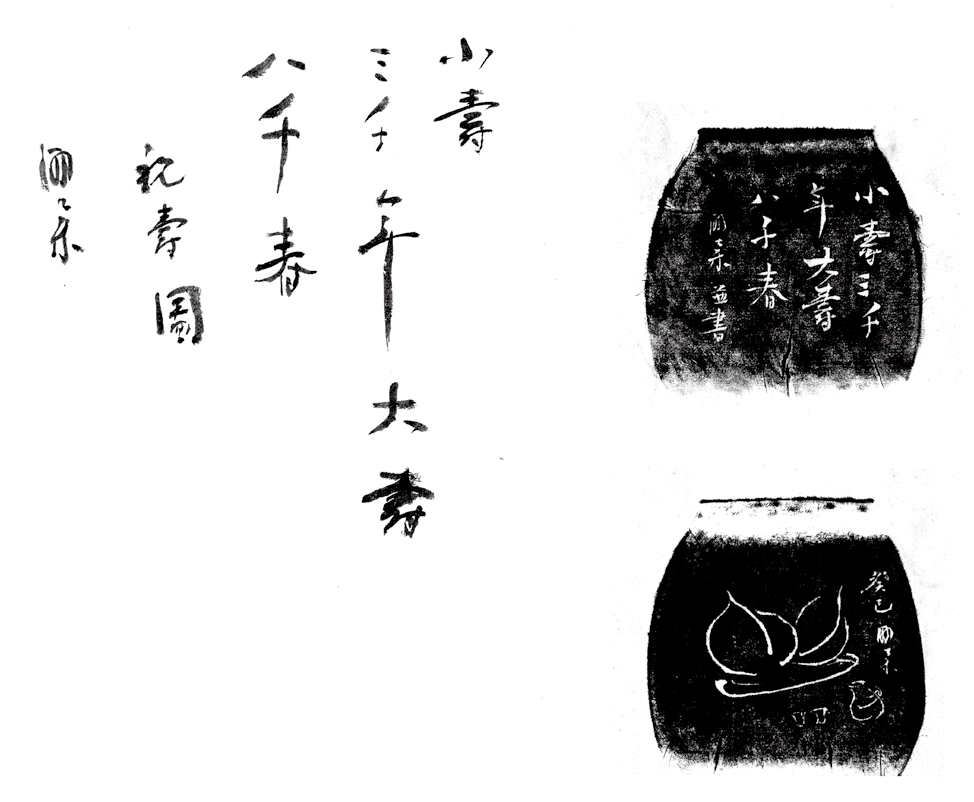 小壽
三千年大壽
八千春
祝壽圖
小壽三千
年大壽
八千春
並書
癸巳